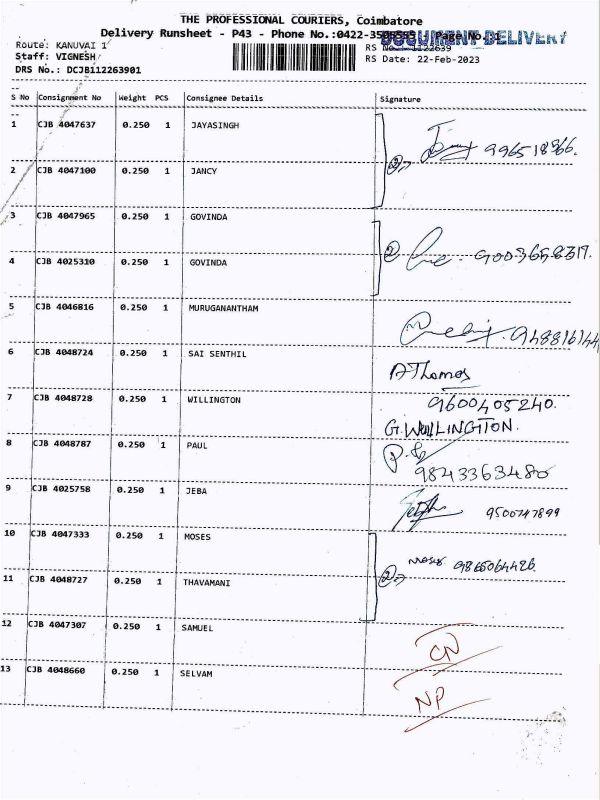 THE PROFESSIONAL COURIERS, Coimbatore
Delivery Runsheet - P43 - Phone No.:0422-3508555 Page No.:1
DOCUMENT DELIVERY
Route: KANUVAI 1
RS No.: 1122639
Staff: VIGNESH
RS Date: 22-Feb-2023
DRS No.: DCJB112263901
S No Consignment No Weight PCS Consignee Details Signature
1 CJB 4047637 0.250 1 JAYASINGH
2 CJB 4047100 0.250 1 JANCY
3 CJB 4047965 0.250 1 GOVINDA
2 9003658317.
4 CJB 4025310 0.250 1 GOVINDA
5 CJB 4046816 0.250 1 MURUGANANTHAM
6 CJB 4048724 0.250 1 SAI SENTHIL
A Thomas
7 CJB 4048728 0.250 1 WILLINGTON
9600405240.
G. WILLINGTON.
8 CJB 4048787 0.250 1 PAUL
9843363480
9 CJB 4025758 0.250 1 JEBA
9500747899
10 CJB 4047333 0.250 1 MOSES
2 Moses 9865064426.
11 CJB 4048727 0.250 1 THAVAMANI
12 CJB 4047307 0.250 1 SAMUEL
CN
13 CJB 4048660 0.250 1 SELVAM
NP